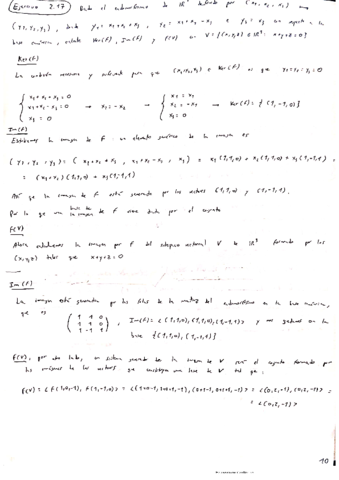 Ejercicio 2.17 Dado el endomorfismo de ℝ³ definido por (x₁, x₂, x₃) →
(y₁, y₂, y₃), donde y₁ = x₁ + x₂ + x₃, y₂ = x₁ + x₂ - x₃ e y₃ = x₃ en
base canónica, Ker(f), Im(f) y f(V) V = {(x,y,z) ∈ ℝ³: x+y+z=0}
Ker(f)
La condición necesaria y suficiente para que (x₁,x₂,x₃) ∈ Ker(f) es que y₁=y₂=y₃=0
x₁+x₂+x₃ = 0
x₁+x₂-x₃ = 0 → x₁ = -x₂ → Ker(f) = {(1,-1,0)}
x₃ = 0
Im(f)
Estudiamos la imagen de f: un elemento genérico de la imagen es
(y₁, y₂, y₃) = (x₁+x₂+x₃, x₁+x₂-x₃, x₃) = x₁(1,1,0) + x₂(1,1,0) + x₃(1,-1,1) =
= (x₁+x₂)(1,1,0) + x₃(1,-1,1)
Así que la imagen de f está generada por los vectores (1,1,0) y (1,-1,1).
Por lo que una base de la imagen de f viene dada por el conjunto
f(V)
Ahora calculamos la imagen por f del subespacio vectorial V de ℝ³ formado por los
(x,y,z) tales que x+y+z=0
Im(f)
La imagen está generada por las filas de la matriz del endomorfismo en la base canónica,
que es
(1 1 0
1 1 0
1 -1 1), Im(f) = <(1,1,0), (1,1,0), (1,-1,1)> y nos quedamos con la
base {(1,1,0), (1,-1,1)}
f(V), por otro lado, un sistema generador de la imagen de V será el conjunto formado por
las imágenes de los vectores que constituyen una base de V tal que:
f(V) = <f(1,0,-1), f(0,1,-1)> = <(1+0-1, 1+0+1, -1), (0+1-1, 0+1+1, -1)> = <(0,2,-1), (0,2,-1)> =
= <(0,2,-1)>
10